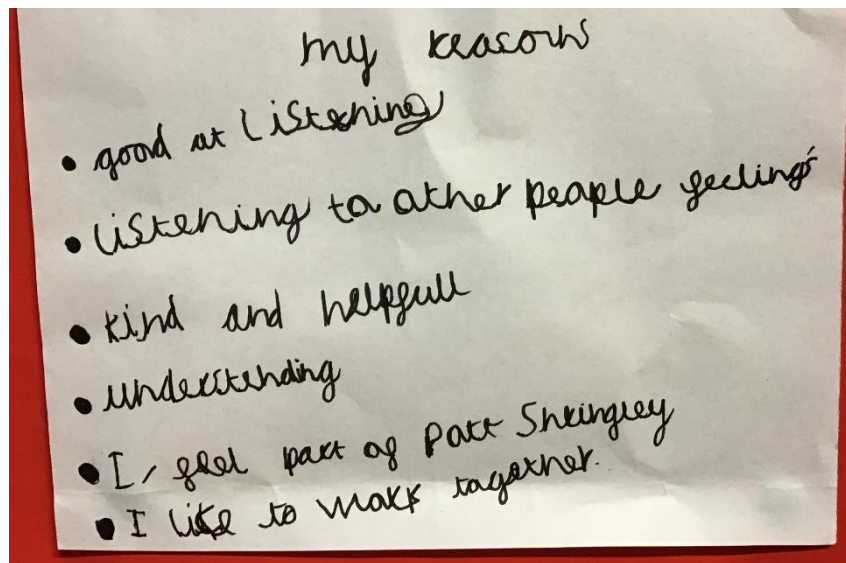 my reasons
• good at Listening
• Listening to other people feelings
• kind and helpfull
• understanding
• I feel part of Pott Shringley
• I like to work together.